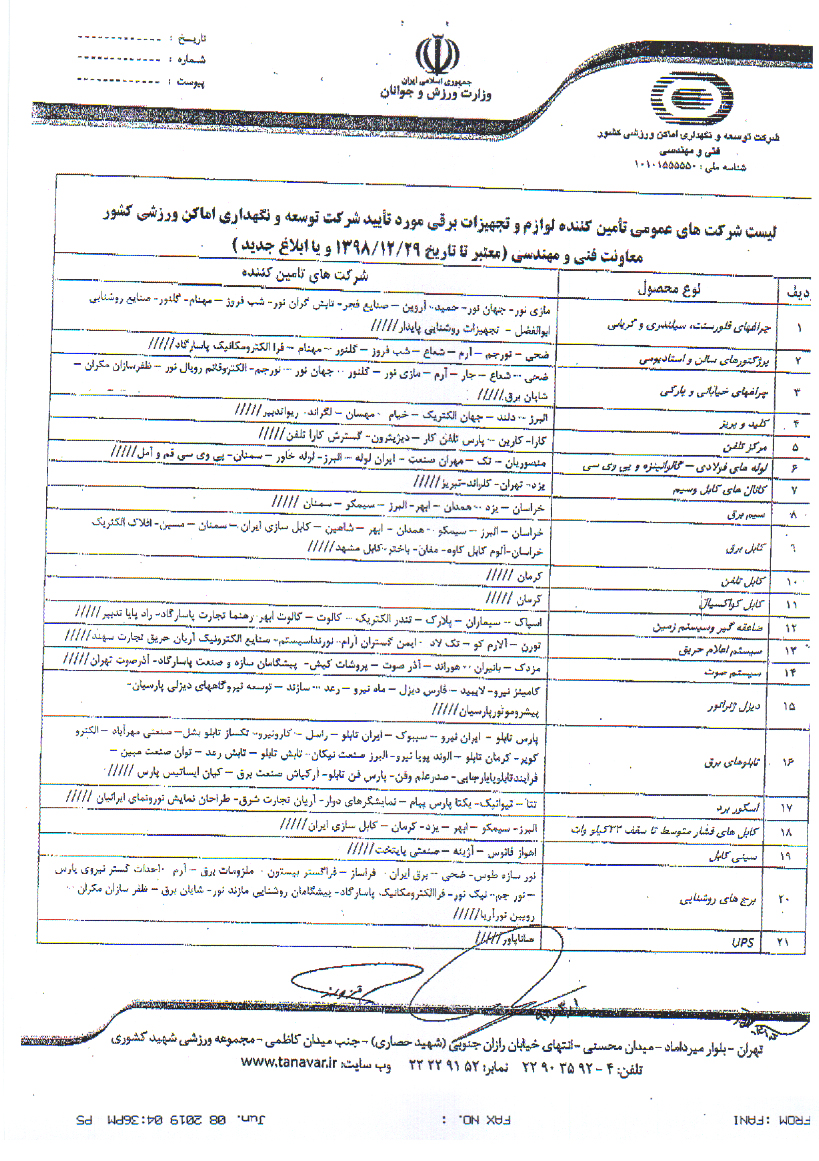 تاریخ : ------------
شماره : ------------
پیوست : ------------
جمهوری اسلامی ایران
وزارت ورزش و جوانان
شرکت توسعه و نگهداری اماکن ورزشی کشور
فنی و مهندسی
شناسه ملی : ۱۰۱۰۱۵۵۵۵۵۰
لیست شرکت های عمومی تأمین کننده لوازم و تجهیزات برقی مورد تأیید شرکت توسعه و نگهداری اماکن ورزشی کشور
معاونت فنی و مهندسی (معتبر تا تاریخ ۱۳۹۸/۱۲/۲۹ و یا ابلاغ جدید )
ردیف نوع محصول شرکت های تامین کننده
۱ چراغهای فلورسنت، سیلندری و گریلی مازی نور- جهان نور- حمید- آروین – صنایع فجر- تابش گران نور- شب فروز – مهنام- گلنور- صنایع روشنایی
ابوالفضل - تجهیزات روشنایی پایدار/////
۲ پرژکتورهای سالن و استادیومی ضحی – نورجم – آرم – شعاع – شب فروز – گلنور – مهنام – فرا الکترومکانیک پاسارگاد/////
۳ چراغهای خیابانی و پارکی ضحی – شعاع – جار – آرم – مازی نور – گلنور – جهان نور – نورجم- الکتروقائم رویال نور – ظفرسازان مکران –
شایان برق/////
۴ کلید و پریز البرز – دلند – جهان الکتریک – خیام - مهسان – لگراند- ریواندپیر/////
۵ مرکز تلفن کارا- کارین – پارس تلفن کار – دیزیترون- گسترش کارا تلفن/////
۶ لوله های فولادی – گالوانیزه و پی وی سی منسوریان – تک – مهران صنعت - ایران لوله – البرز- لوله خاور – سمنان- پی وی سی قم و آمل/////
۷ کانال های کابل وسیم یزد- تهران- کلراند-تبریز/////
۸ سیم برق خراسان – یزد – همدان – ابهر- البرز – سیمکو – سمنان /////
۹ کابل برق خراسان – البرز – سیمکو – همدان – ابهر – شاهین – کابل سازی ایران – سمنان – مسین- افلاک الکتریک
خراسان-آلوم کابل کاوه- مغان- باختر-کابل مشهد/////
۱۰ کابل تلفن کرمان /////
۱۱ کابل کواکسیال کرمان /////
۱۲ صاعقه گیر وسیستم زمین اسپاک – سیماران – پلارک – تندر الکتریک – کالوت – کالوت ابهر- رهنما تجارت پاسارگاد- راد پایا تدبیر/////
۱۳ سیستم اعلام حریق تورن – آلارم کو – تک لاد - ایمن گستران آرام- نورتداسیستم- صنایع الکترونیک آریان حریق تجارت سهند/////
۱۴ سیستم صوت مزدک – بانیران – هوراند – آذر صوت – پروشات کیش- پیشگامان سازه و صنعت پاسارگاد- آذرصوت تهران/////
۱۵ دیزل ژنراتور کامینز نیرو- لایبید – فارس دیزل – ماه نیرو – رعد – سازند – توسعه نیروگاههای دیزلی پارسیان-
پیشروموتورپارسیان/////
۱۶ تابلوهای برق پارس تابلو - ایران نیرو – سیبوک – ایران تابلو – راسل – کارونیرو- تکساز تابلو بشل– صنعتی مهرآباد – الکترو
کویر- کرمان تابلو – الوند پویا نیرو- البرز صنعت نیکان- تابش تابلو – تابش رعد – توان صنعت مبین –
فرایندتابلوپایارجایی- صدرعلم وفن- پارس فن تابلو- آرکیاش صنعت برق – کیان ایساتیس پارس /////
۱۷ اسکور برد تتا – تیوانیک- یکتا پارس پیام – نمایشگرهای دوار- آریان تجارت شرق- طراحان نمایش نورونمای ایرانیان /////
۱۸ کابل های فشار متوسط تا سقف ۳۳کیلو وات البرز- سیمکو – ابهر – یزد- کرمان – کابل سازی ایران/////
۱۹ سینی کابل اهواز فانوس – آژینه – صنعتی پایتخت/////
۲۰ برج های روشنایی نور سازه طوس- ضحی – برق ایران - فراساز – فراگستر بیستون - ملزومات برق – آرم - احداث گستر نیروی پارس
– نور جم- نیک نور- فراالکترومکانیک پاسارگاد- پیشگامان روشنایی مازند نور- شایان برق – ظفر سازان مکران –
رویین نورآریا/////
۲۱ UPS ساناپاور/////
تهران – بلوار میرداماد – میدان محسنی – انتهای خیابان رازان جنوبی (شهید حصاری) – جنب میدان کاظمی – مجموعه ورزشی شهید کشوری
تلفن: ۴ - ۹۲ ۳۵ ۹۰ ۲۲ نمابر: ۵۲ ۹۱ ۲۲ ۲۲ وب سایت: www.tanavar.ir
FROM :FANI FAX NO. : Jun. 08 2019 04:36PM P5